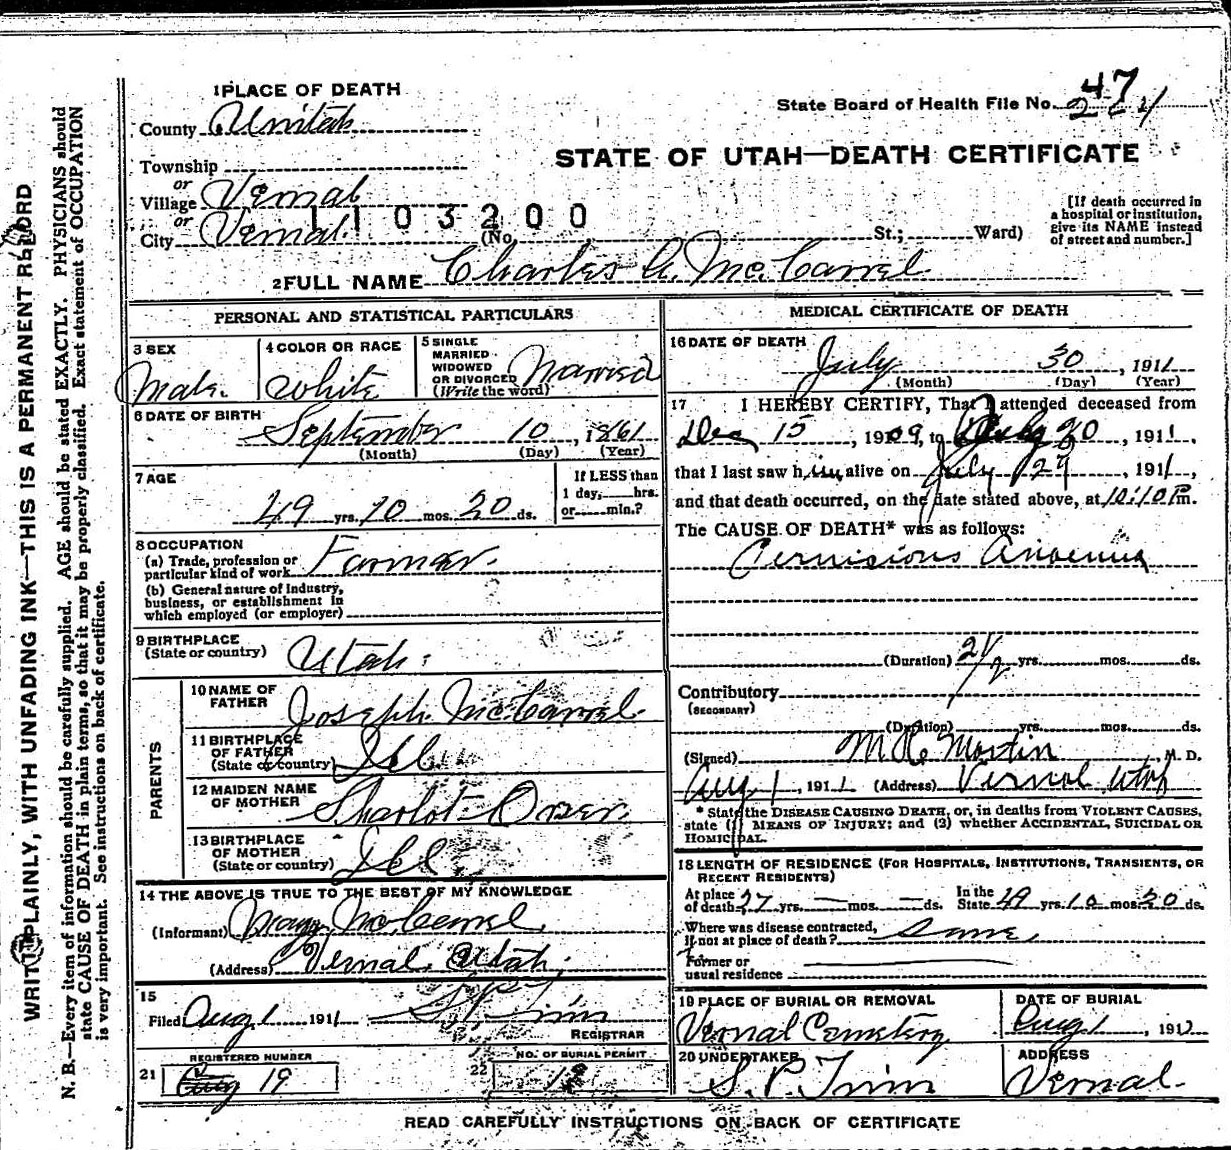 WRITE PLAINLY, WITH UNFADING INK—THIS IS A PERMANENT RECORD
N. B.—Every item of information should be carefully supplied. AGE should be stated EXACTLY. PHYSICIANS should
state CAUSE OF DEATH in plain terms, so that it may be properly classified. Exact statement of OCCUPATION
is very important. See instructions on back of certificate.
1 PLACE OF DEATH
State Board of Health File No.
County Unitah
STATE OF UTAH—DEATH CERTIFICATE
Township
or
Village Vernal
or
1103200
City Vernal (No. St.; Ward)
[If death occurred in
a hospital or institution,
give its NAME instead
of street and number.]
2 FULL NAME Charles A. McCarrel
PERSONAL AND STATISTICAL PARTICULARS
3 SEX
Male.
4 COLOR OR RACE
White
5 SINGLE
MARRIED
WIDOWED
OR DIVORCED
(Write the word)
Married
6 DATE OF BIRTH
September 10, 1861
(Month) (Day) (Year)
7 AGE
49 yrs. 10 mos. 20 ds.
If LESS than
1 day, hrs.
or min.?
8 OCCUPATION
(a) Trade, profession or
particular kind of work Farmer.
(b) General nature of Industry,
business, or establishment in
which employed (or employer)
9 BIRTHPLACE
(State or country) Utah.
PARENTS
10 NAME OF
FATHER Joseph McCarrel
11 BIRTHPLACE
OF FATHER
(State or country) Ill
12 MAIDEN NAME
OF MOTHER Sharlot
13 BIRTHPLACE
OF MOTHER
(State or country) Ill
14 THE ABOVE IS TRUE TO THE BEST OF MY KNOWLEDGE
(Informant) McCarrel
(Address) Vernal, Utah.
15
Filed Aug 1 1911
REGISTRAR
REGISTERED NUMBER
21 Aug 19
NO. OF BURIAL PERMIT
22
MEDICAL CERTIFICATE OF DEATH
16 DATE OF DEATH
July 30, 1911
(Month) (Day) (Year)
17 I HEREBY CERTIFY, That I attended deceased from
Dec 15, 1909, to July 30, 1911,
that I last saw him alive on July 29, 1911,
and that death occurred, on the date stated above, at 10:10 Pm.
The CAUSE OF DEATH* was as follows:
Pernisious Anaemia
(Duration) 2 1/2 yrs. mos. ds.
Contributory
(SECONDARY)
(Duration) yrs. mos. ds.
(Signed) Martin, M. D.
Aug 1, 1911 (Address) Vernal Utah
* State the DISEASE CAUSING DEATH, or, in deaths from VIOLENT CAUSES,
state (1) MEANS OF INJURY; and (2) whether ACCIDENTAL, SUICIDAL OR
HOMICIDAL.
18 LENGTH OF RESIDENCE (FOR HOSPITALS, INSTITUTIONS, TRANSIENTS, OR
RECENT RESIDENTS)
At place
of death 27 yrs. — mos. — ds.
In the
State 49 yrs. 10 mos. 20 ds.
Where was disease contracted,
If not at place of death? Same.
Former or
usual residence
19 PLACE OF BURIAL OR REMOVAL
Vernal Cemetery
DATE OF BURIAL
Aug 1, 1911
20 UNDERTAKER
S. P. Trim
ADDRESS
Vernal.
READ CAREFULLY INSTRUCTIONS ON BACK OF CERTIFICATE